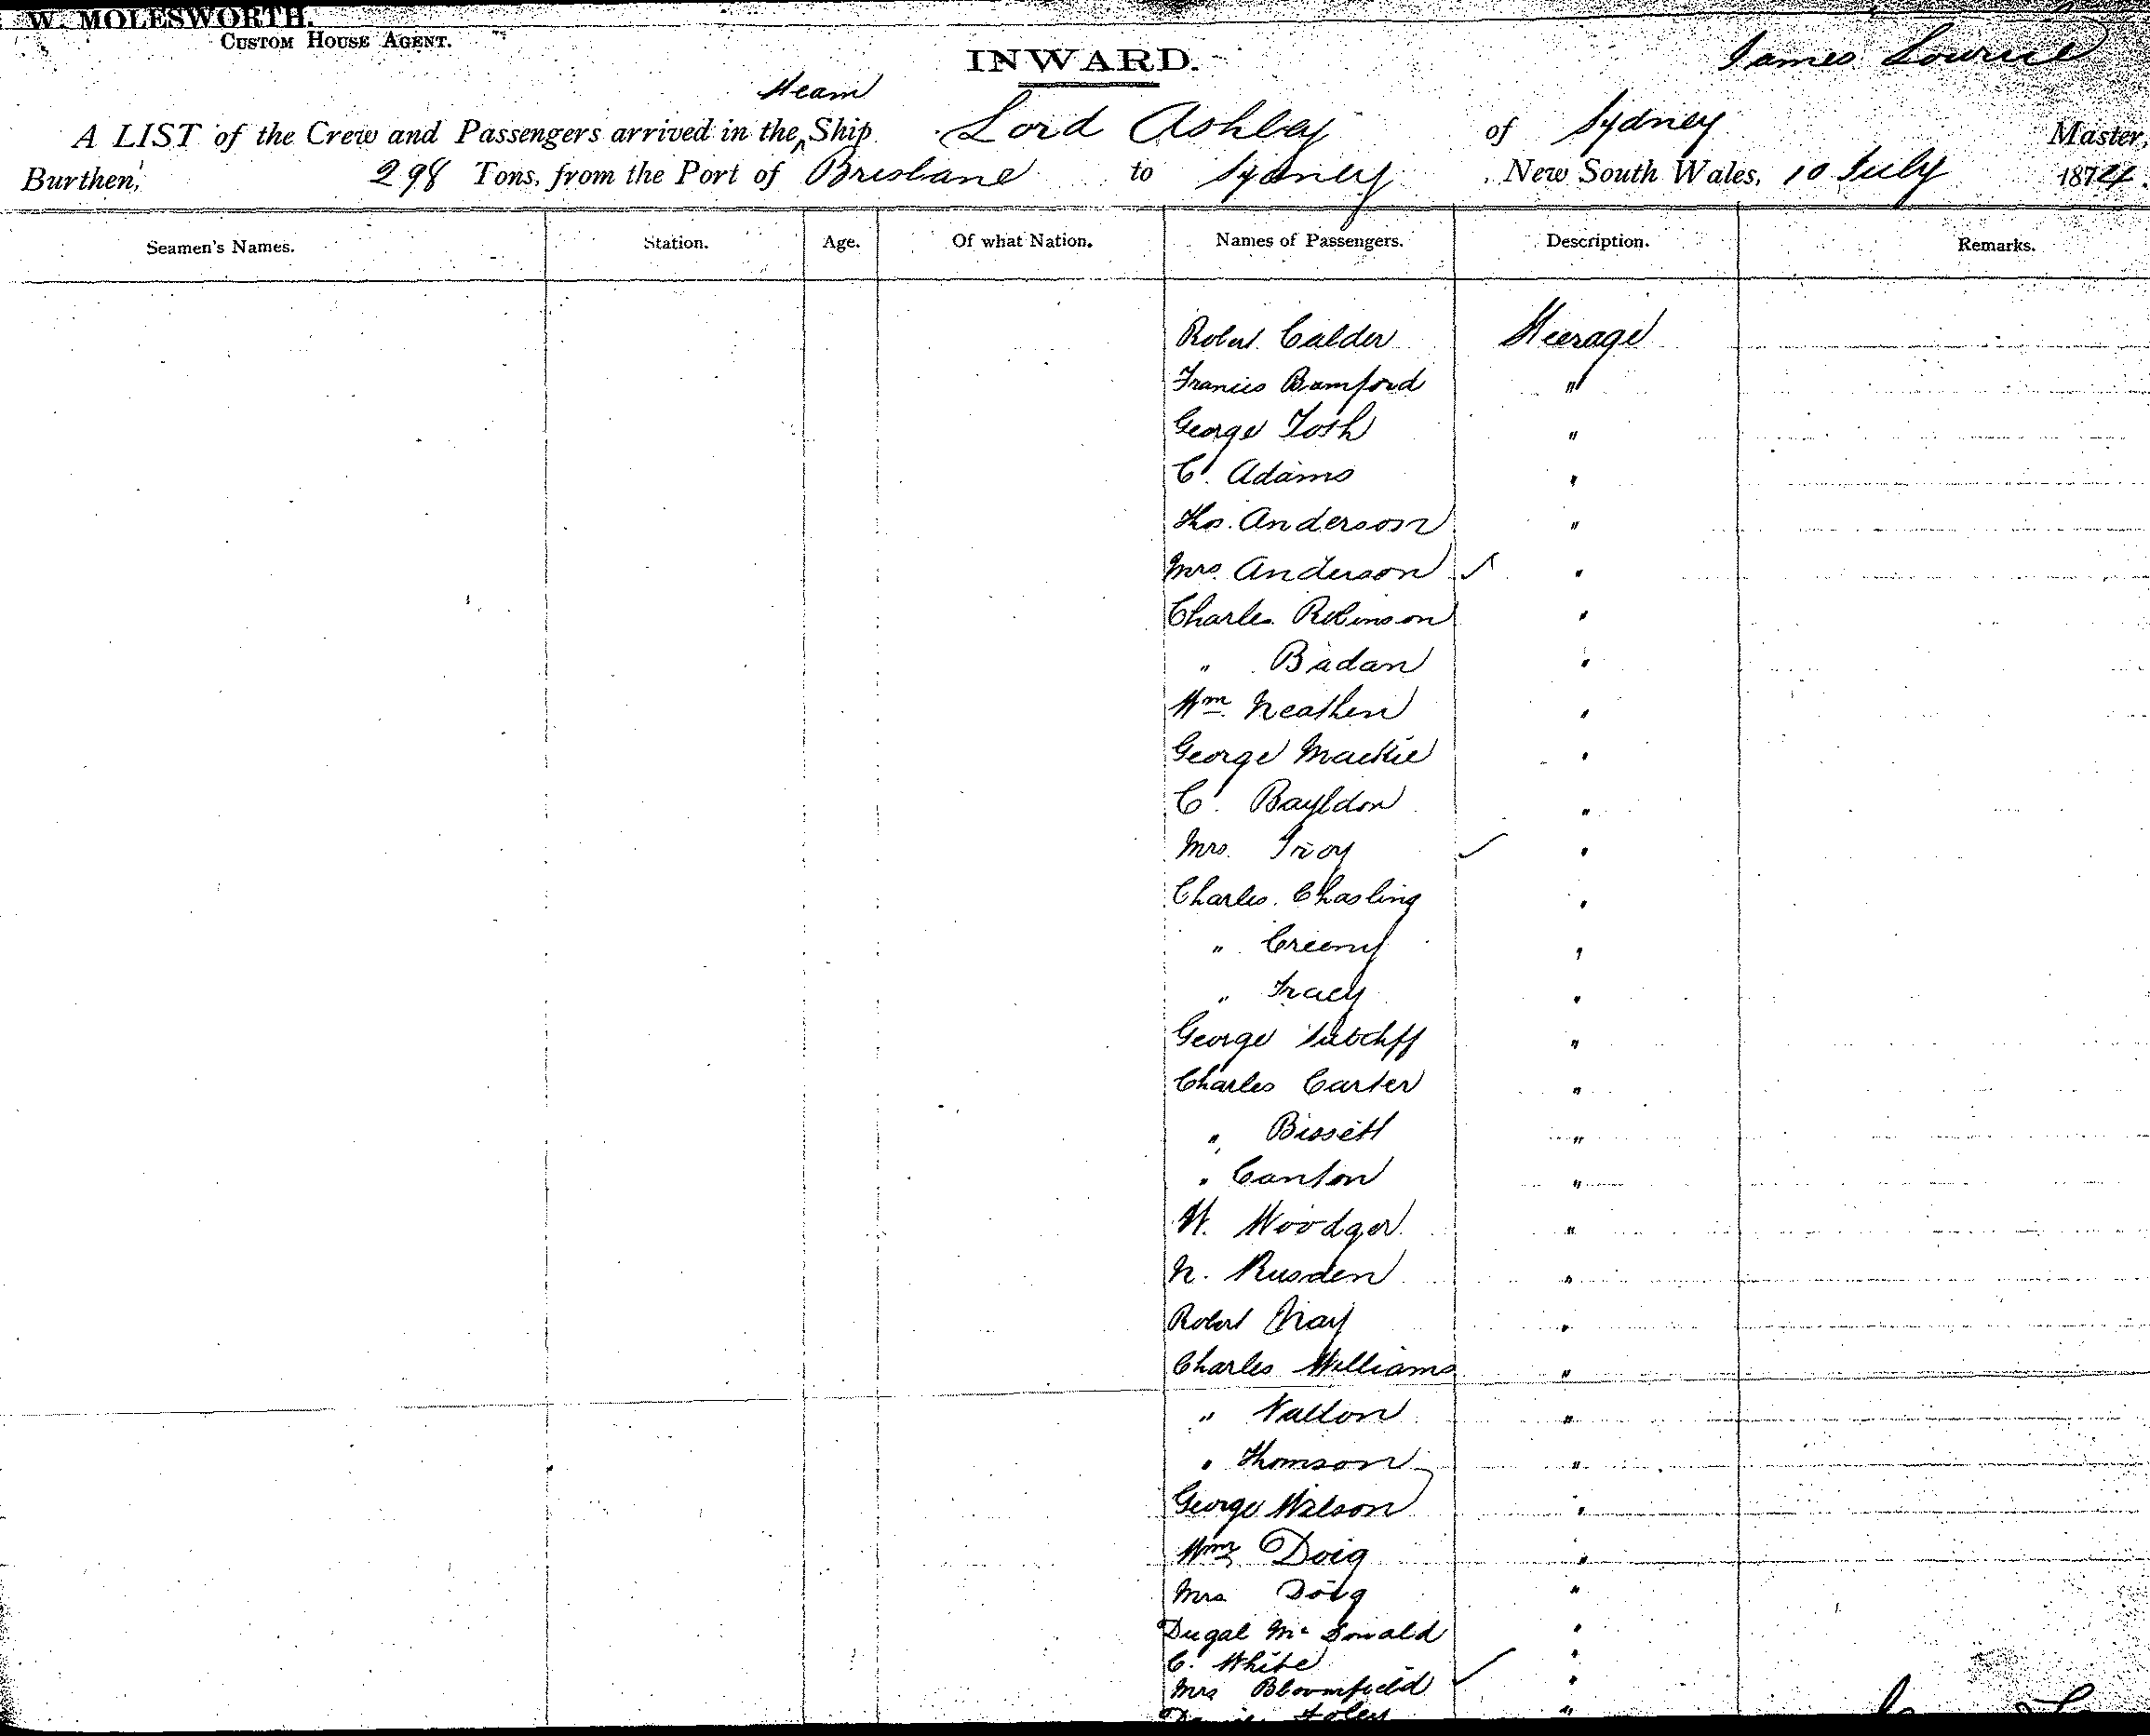 W. MOLESWORTH.
CUSTOM HOUSE AGENT.
INWARD.
James Lowrie
Steam
A LIST of the Crew and Passengers arrived in the ^ Ship Lord Ashley of Sydney Master,
Burthen, 298 Tons, from the Port of Brisbane to Sydney, New South Wales, 10 July 1874.
Seamen's Names. Station. Age. Of what Nation. Names of Passengers. Description. Remarks.
Robert Calder Steerage
Francis Bamford "
George Tosh "
C. Adams "
Thos. Anderson "
Mrs. Anderson ✓ "
Charles Robinson "
" Badan "
Wm. Neathen "
George Mackie "
C. Bayldon "
Mrs. Troy ✓ "
Charles Chasling "
" Creeny "
" Tracy "
George Sutcliff "
Charles Carter "
" Bissett "
" Canton "
W. Woodger "
N. Rusden "
Robert "
Charles Williams "
" "
" Thomson "
George Wilson "
Wm Doig "
Mrs Doig "
Dugal McDonald "
C. White "
Mrs Bloomfield ✓ "
Foley "